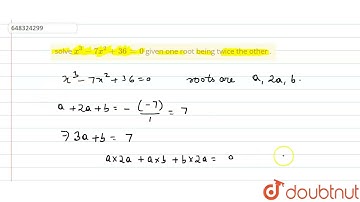 648324299
solve x³ - 7x² + 36 = 0 given one root being twice the other.
x³ - 7x² + 36 = 0 roots are a, 2a, b.
a + 2a + b = - (-7)/1 = 7
⇒ 3a + b = 7
a×2a + a×b + b×2a = 0
doubtnut